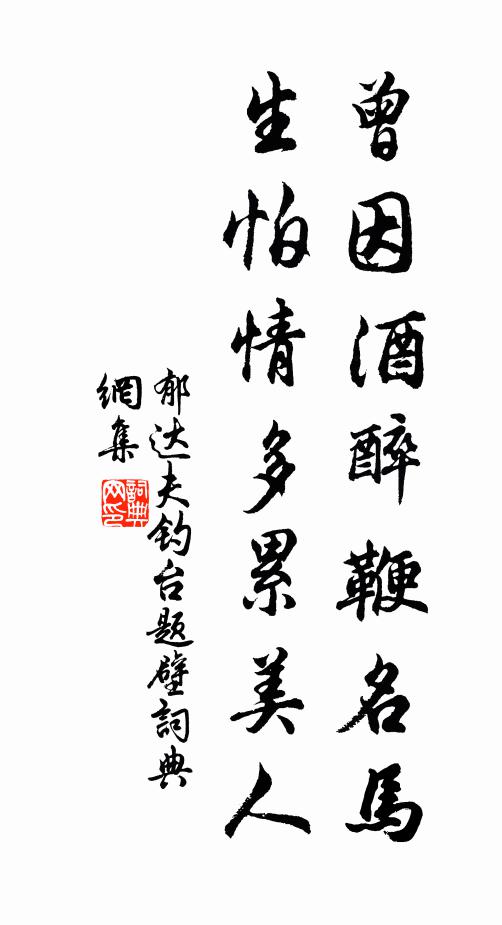 曾因酒醉鞭名馬
生怕情多累美人
郁达夫钓台题壁詞典
網集
詞典
网印